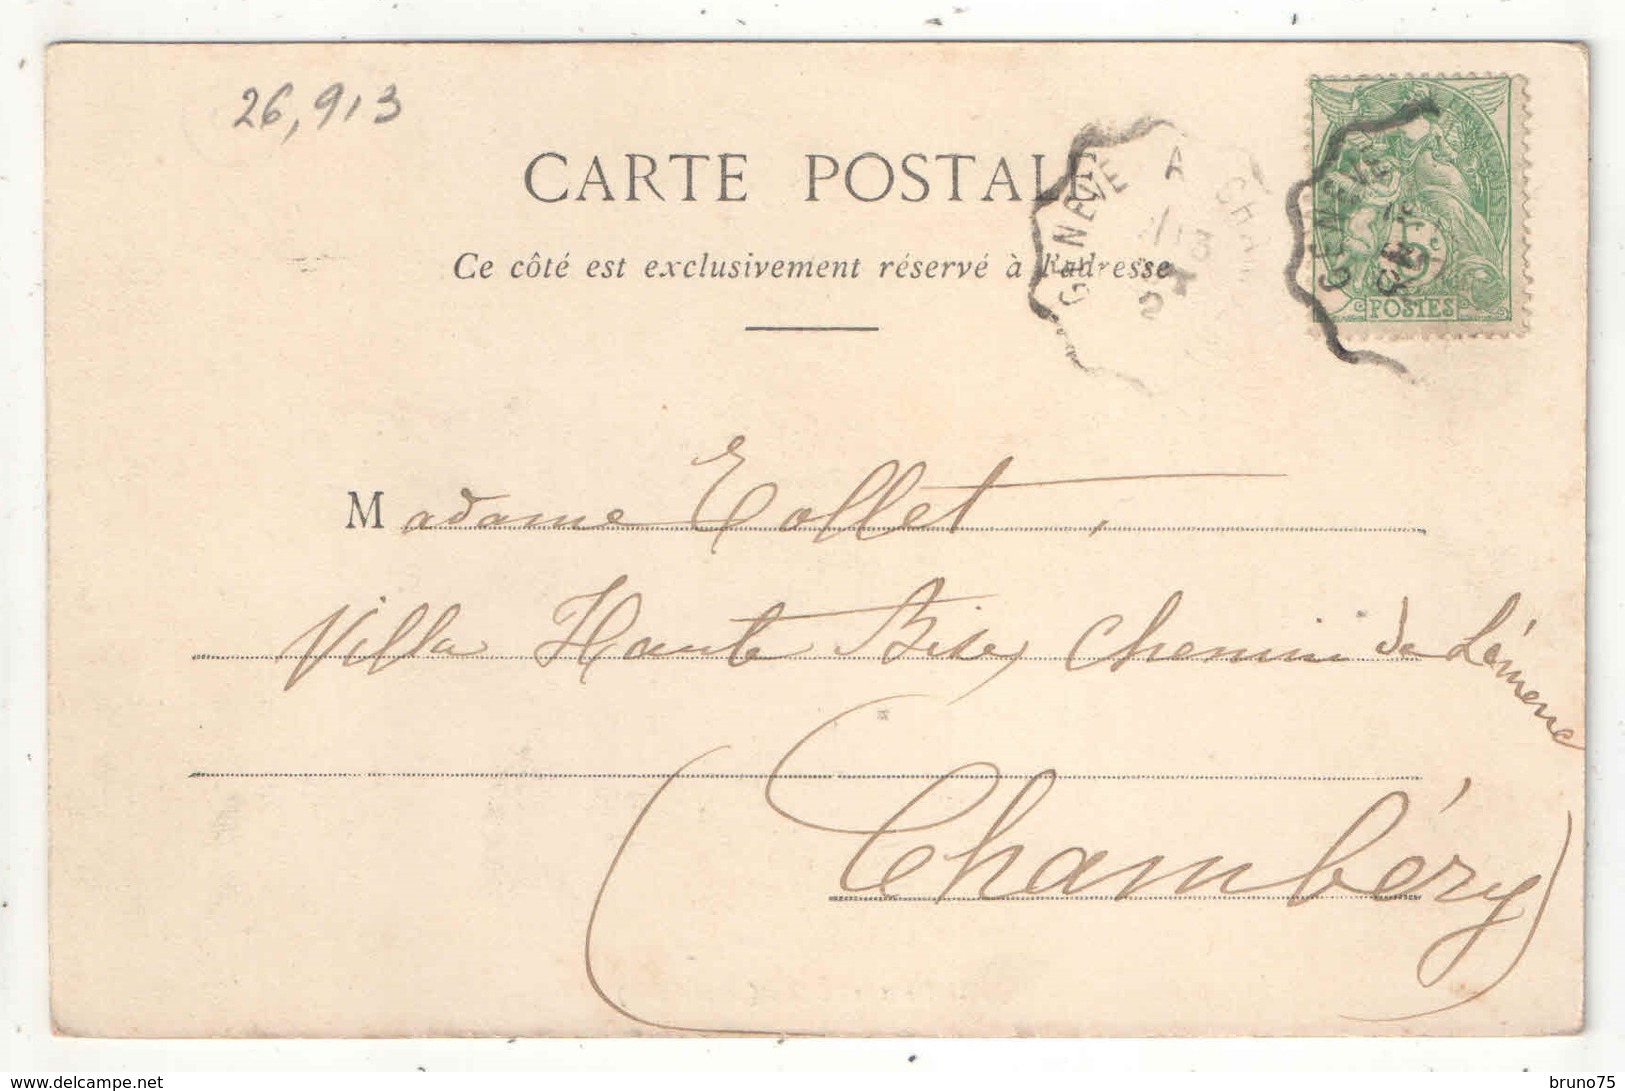 26,913
CARTE POSTALE
Ce côté est exclusivement réservé à l'adresse
GENÈVE A CHA
GENÈVE
5c
POSTES
Madame Collet,
Villa Haute Bise, Chemin de Lémenc
(Chambéry)
www.delcampe.net
bruno75